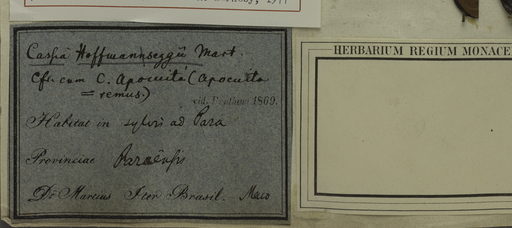 Caspā Hoffmannseggii Mart.
Cfr. cum C. Apocuita (Apocuita
= remus.)
vid. Pentham 1869.
Habitat in sylvis ad Para
Provinciae Paraënsis
Dr Martius Iter Brasil. Maio
HERBARIUM REGIUM MONACE